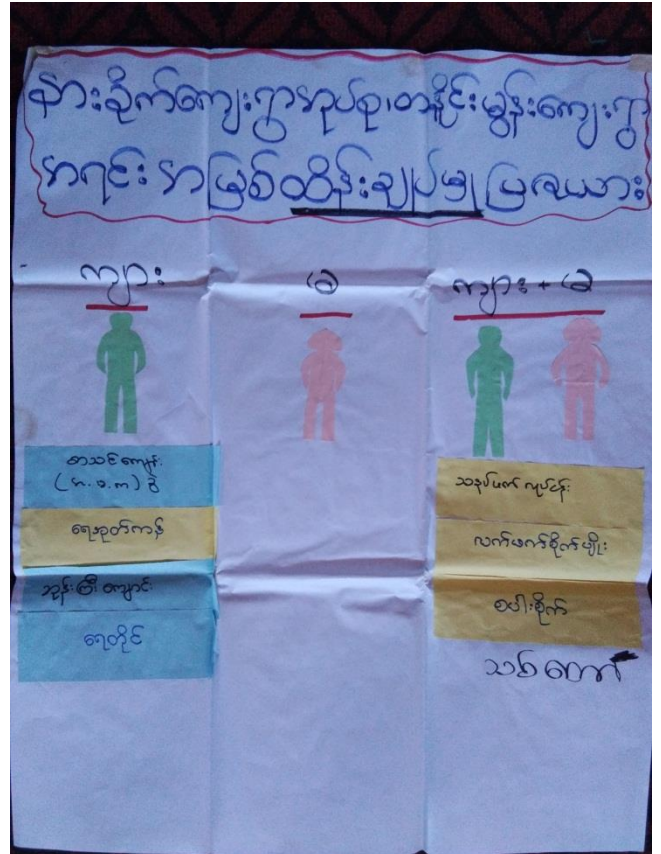 နားခိုက်ကျေးရွာအုပ်စု၊တနိူင်းမွန်းကျေးရွာ
အရင်းအမြစ်ထိန်းချုပ်မှုပြဇယား
ကျား
မ
ကျား + မ
စာသင်ကျောင်း
(အ.မ.က) ခွဲ
ရေအုတ်ကန်
ဘုန်းကြီးကျောင်း
ရေတိုင်
သနပ်ဖက် လုပ်ငန်း
လက်ဖက်စိုက်မျိုး
စပါးစိုက်
သစ်တော